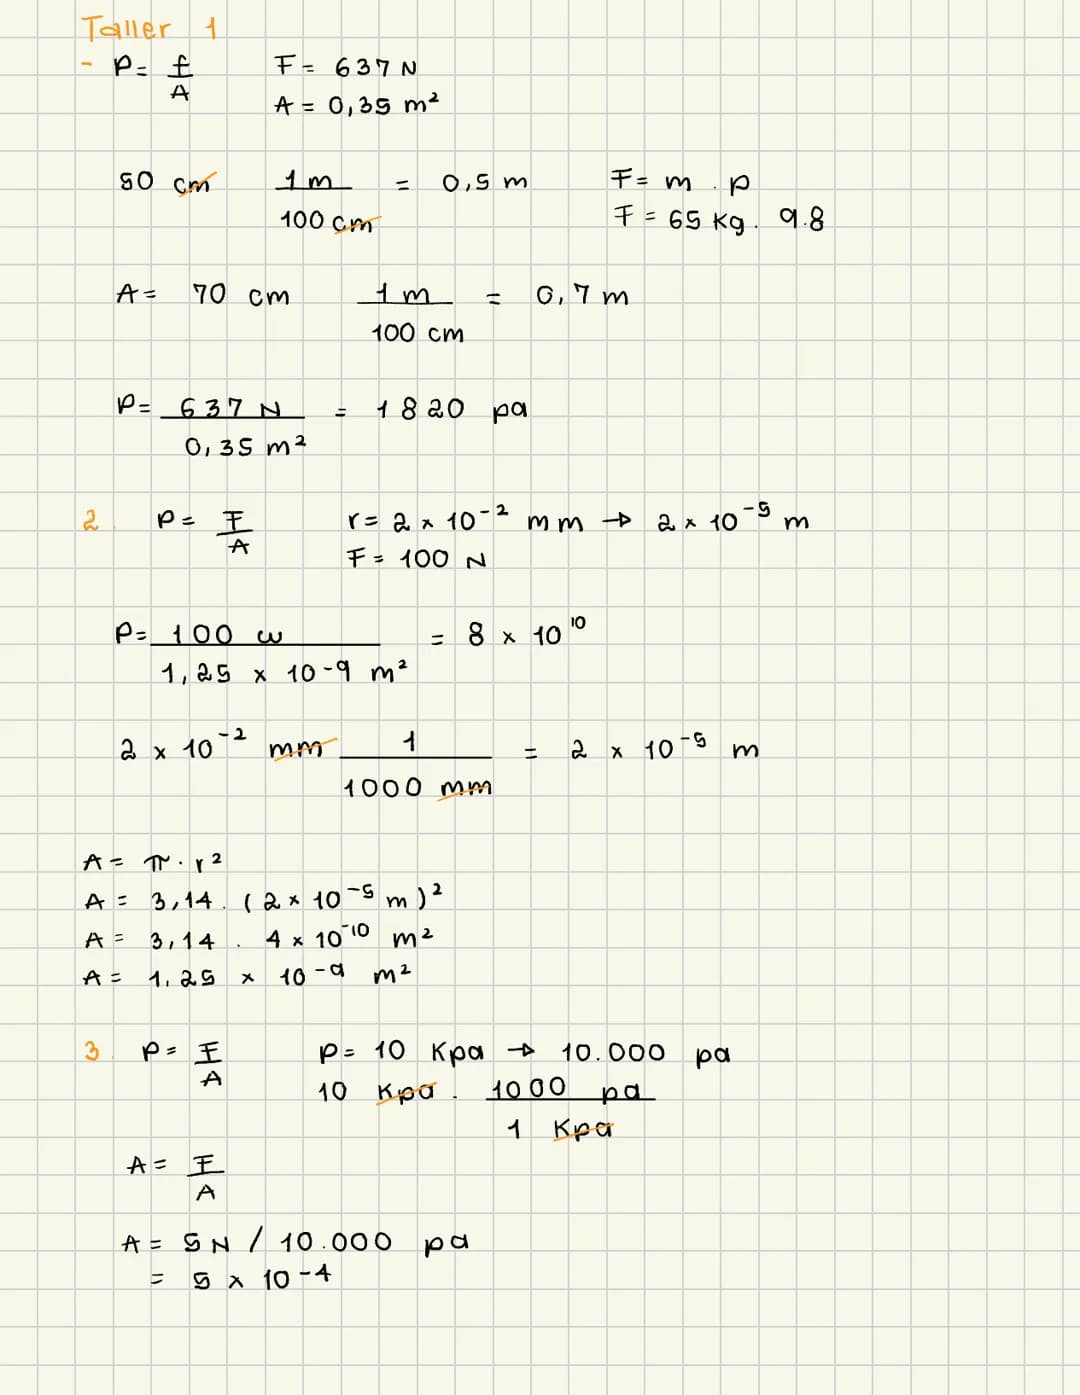 Taller 1
- P= f/A F= 637 N
A = 0,35 m²
50 cm 1 m / 100 cm = 0,5 m F= m . p
F = 65 Kg. 9.8
A= 70 cm 1 m / 100 cm = 0,7 m
P= 637 N / 0,35 m² = 1820 pa
2. P= F/A r= 2 x 10⁻² mm → 2 x 10⁻⁵ m
F= 100 N
P= 100 w / 1,25 x 10-9 m² = 8 x 10¹⁰
2 x 10⁻² mm 1 / 1000 mm = 2 x 10⁻⁵ m
A= π. r²
A = 3,14. (2 x 10⁻⁵ m)²
A = 3,14 . 4 x 10⁻¹⁰ m²
A = 1,25 x 10⁻⁹ m²
3. P= F/A P= 10 Kpa → 10.000 pa
10 Kpa . 1000 pa / 1 Kpa
A= F/A
A = 5 N / 10.000 pa
= 5 x 10-4